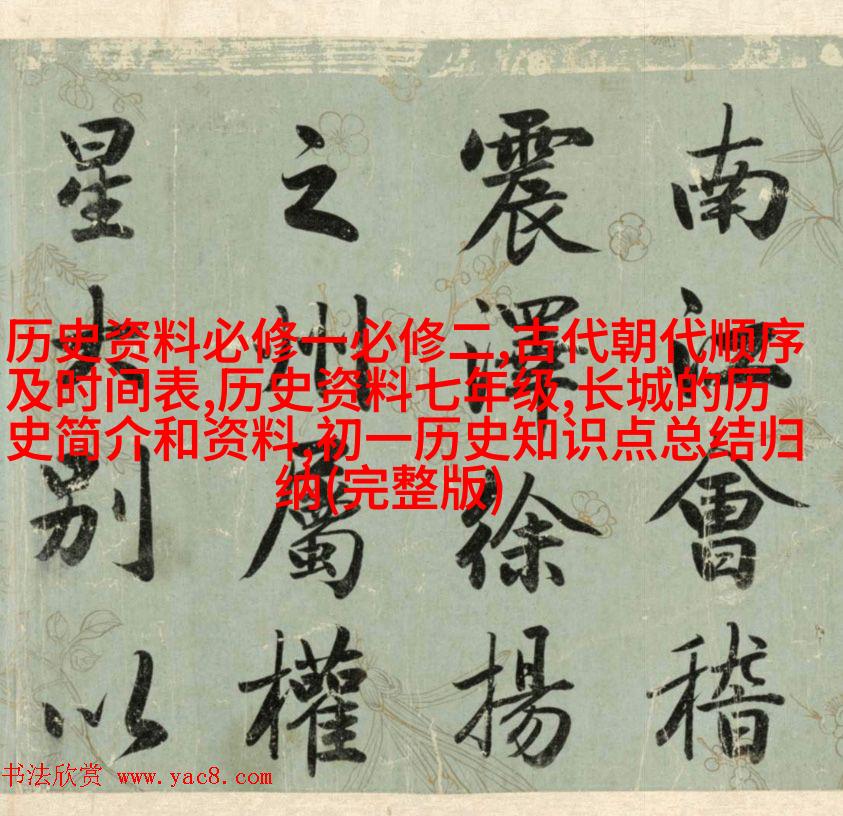 南江會稽
震澤徐揚
之州屬權
星大別以
历史资料必修一必修二,古代朝代顺序
及时间表,历史资料七年级,长城的历
史简介和资料,初一历史知识点总结归
纳(完整版)
书法欣赏 www.yac8.com